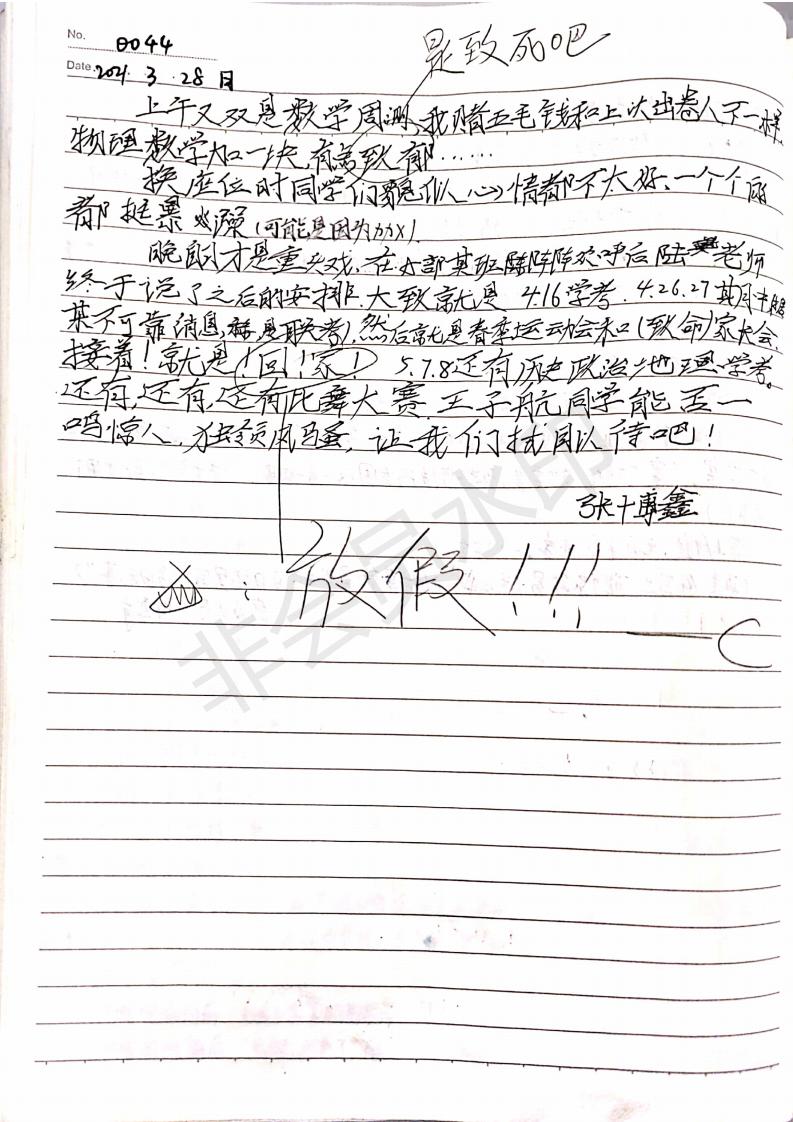 No. 0044
是致死吧
Date. 2021. 3. 28 日
上午又双是数学周测,我赌五毛钱和上次出卷人不一样,
物理数学加一块,有点致郁……
换座位时同学们貌似心情都不太好、一个个的
都挺暴躁(可能是因为かx).
晚自才是重头戏.在大部某班阵阵欢呼后陆老师
终于说了之后的安排.大致就是 4.16学考.4.26.27某月
某不可靠消息,是联考),然后就是春季运动会和(致命)家长会.
接着!就是!回!家! 5.7.8还有历史政治地理学考.
还有,还有,还有比舞大赛.王子航同学能否一
鸣惊人,独领风骚,让我们拭目以待吧!
张博鑫
: 放假!!!
—C
非会员水印